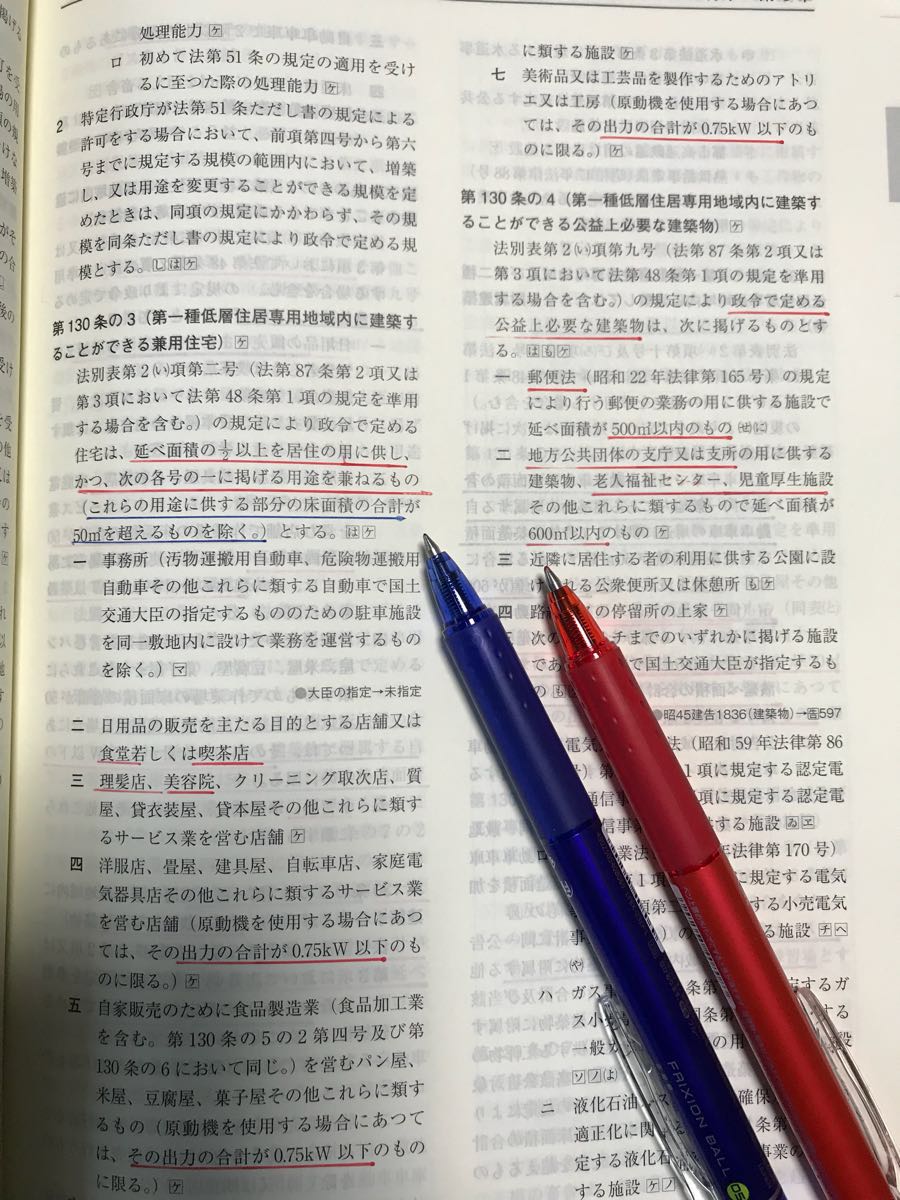 処理能力 ケ
ロ 初めて法第51条の規定の適用を受け
るに至つた際の処理能力 ケ
2 特定行政庁が法第51条ただし書の規定による
許可をする場合において、前項第四号から第六
号までに規定する規模の範囲内において、増築
し、又は用途を変更することができる規模を定
めたときは、同項の規定にかかわらず、その規
模を同条ただし書の規定により政令で定める規
模とする。しはケ
第130条の3(第一種低層住居専用地域内に建築す
ることができる兼用住宅)ケ
法別表第2(い)項第二号(法第87条第2項又は
第3項において法第48条第1項の規定を準用
する場合を含む。)の規定により政令で定める
住宅は、延べ面積の1/2以上を居住の用に供し、
かつ、次の各号の一に掲げる用途を兼ねるもの
(これらの用途に供する部分の床面積の合計が
50㎡を超えるものを除く。)とする。はケ
一 事務所(汚物運搬用自動車、危険物運搬用
自動車その他これらに類する自動車で国土
交通大臣の指定するもののための駐車施設
を同一敷地内に設けて業務を運営するもの
を除く。)マ
●大臣の指定→未指定
二 日用品の販売を主たる目的とする店舗又は
食堂若しくは喫茶店
三 理髪店、美容院、クリーニング取次店、質
屋、貸衣装屋、貸本屋その他これらに類す
るサービス業を営む店舗 ケ
四 洋服店、畳屋、建具屋、自転車店、家庭電
気器具店その他これらに類するサービス業
を営む店舗(原動機を使用する場合にあつ
ては、その出力の合計が0.75kW以下のも
のに限る。)ケ
五 自家販売のために食品製造業(食品加工業
を含む。第130条の5の2第四号及び第
130条の6において同じ。)を営むパン屋、
米屋、豆腐屋、菓子屋その他これらに類す
るもの(原動機を使用する場合にあつて
は、その出力の合計が0.75kW以下のもの
に限る。)ケ
に類する施設 ケ
七 美術品又は工芸品を製作するためのアトリ
エ又は工房(原動機を使用する場合にあつ
ては、その出力の合計が0.75kW以下のも
のに限る。)ケ
第130条の4(第一種低層住居専用地域内に建築す
ることができる公益上必要な建築物)ケ
法別表第2(い)項第九号(法第87条第2項又は
第3項において法第48条第1項の規定を準用
する場合を含む。)の規定により政令で定める
公益上必要な建築物は、次に掲げるものとす
る。はもケ
一 郵便法(昭和22年法律第165号)の規定
により行う郵便の業務の用に供する施設で
延べ面積が500㎡以内のもの
二 地方公共団体の支庁又は支所の用に供する
建築物、老人福祉センター、児童厚生施設
その他これらに類するもので延べ面積が
600㎡以内のもの ケ
三 近隣に居住する者の利用に供する公園に設
れる公衆便所又は休憩所 もケ
四 路 の停留所の上家 ケ
次の チまでのいずれかに掲げる施設
であ で国土交通大臣が指定するも
の
●昭45建告1836(建築物)→告597
電気 法(昭和59年法律第86
号) 1項に規定する認定電
通信事 項に規定する認定電
信事業 する施設
業法 年法律第170号)
第1項 に規定する電気
項第二 する小売電気
事 )の る施設 チヘ
ハ ガス事 条第 定するガ
ス小売 条第
一般ガ の用
ニ 液化石油 ス 確保
適正化に関 条第
定する液化石 事業の
する施設 ケノ
FRIXION BALL
05